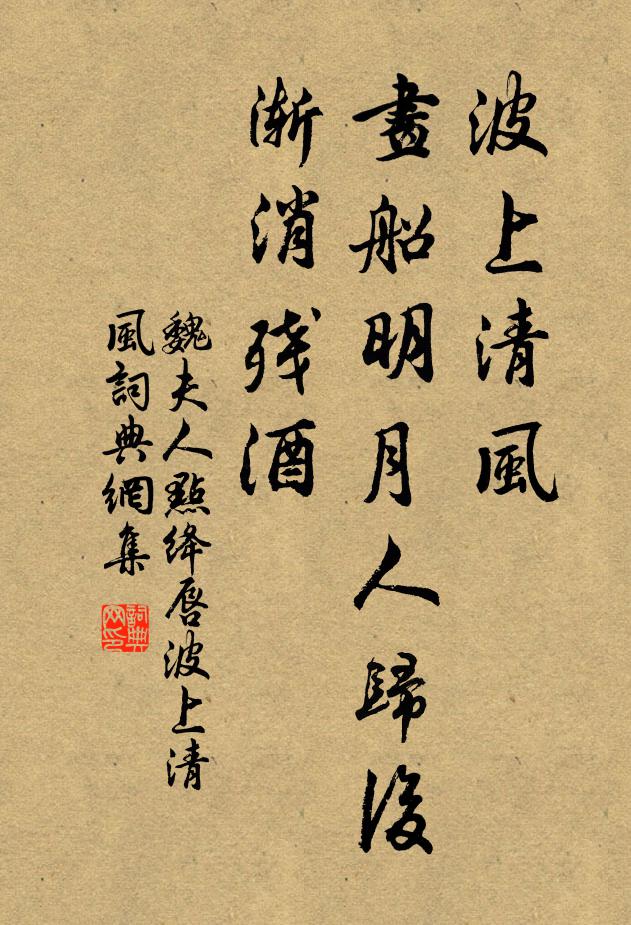 波上清風
畫船明月人歸後
漸消残酒
魏夫人點絳唇波上清
風詞典網集
詞典网印